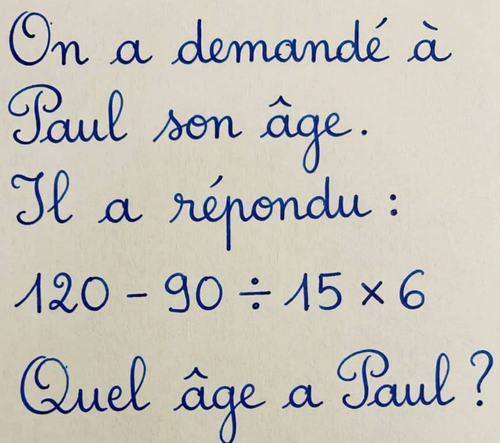 On a demandé à
Paul son âge.
Il a répondu :
120 - 90 ÷ 15 × 6
Quel âge a Paul ?